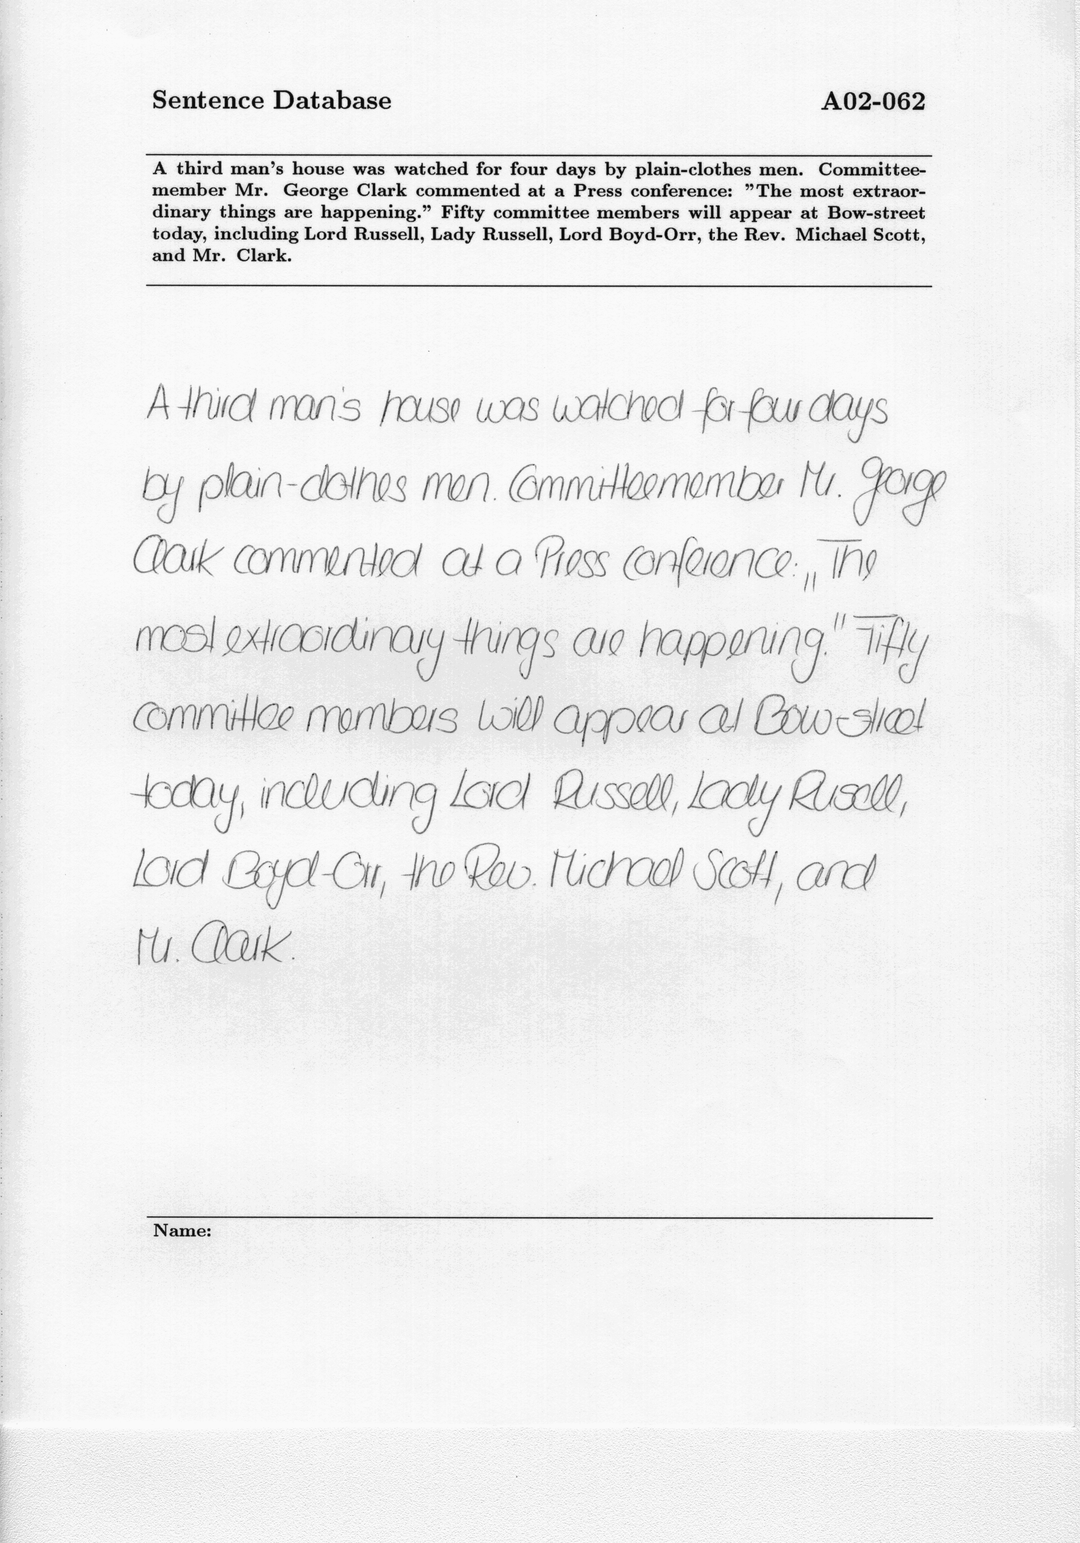 Sentence Database A02-062
A third man's house was watched for four days by plain-clothes men. Committee-
member Mr. George Clark commented at a Press conference: ”The most extraor-
dinary things are happening.” Fifty committee members will appear at Bow-street
today, including Lord Russell, Lady Russell, Lord Boyd-Orr, the Rev. Michael Scott,
and Mr. Clark.
A third man's house was watched for four days
by plain-clothes men. Committeemember Mr. George
Clark commented at a Press conference: „The
most extraordinary things are happening." Fifty
committee members will appear at Bow-street
today, including Lord Russell, Lady Rusell,
Lord Boyd-Orr, the Rev. Michael Scott, and
Mr. Clark.
Name: